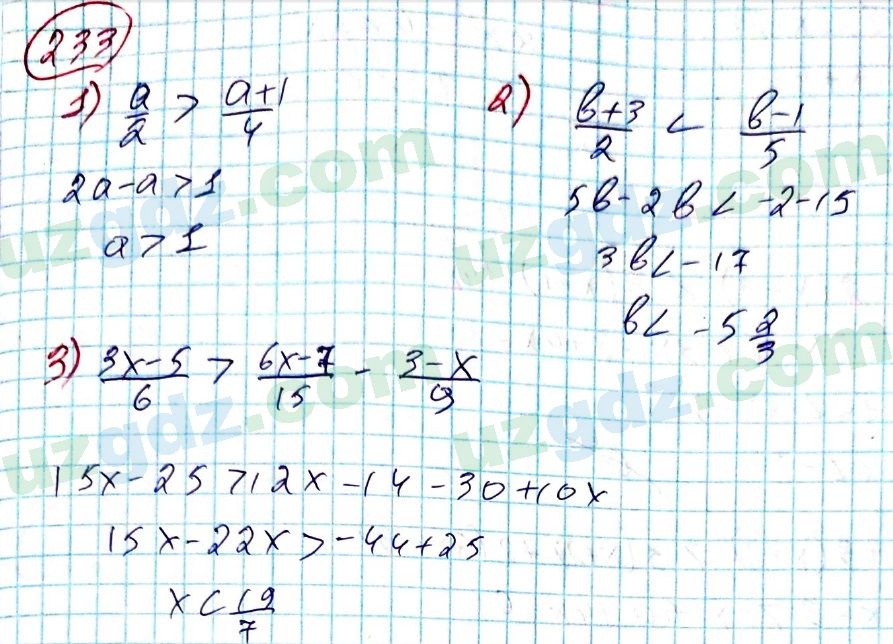 233
1) a/2 > (a+1)/4
2a-a>1
a>1
2) (b+3)/2 < (b-1)/5
5b-2b<-2-15
3b<-17
b<-5 2/3
3) (3x-5)/6 > (6x-7)/15 - (3-x)/9
15x-25>12x-14-30+10x
15x-22x>-44+25
x<19/7
uzgdz.com
uzgdz.com
uzgdz.com
uzgdz.com